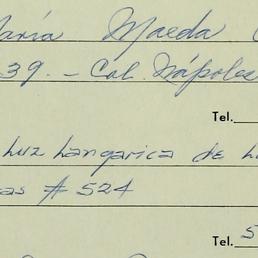 María Maeda
39. - Col. Nápoles
Tel.
Luz Langarica de
as # 524
Tel. 5